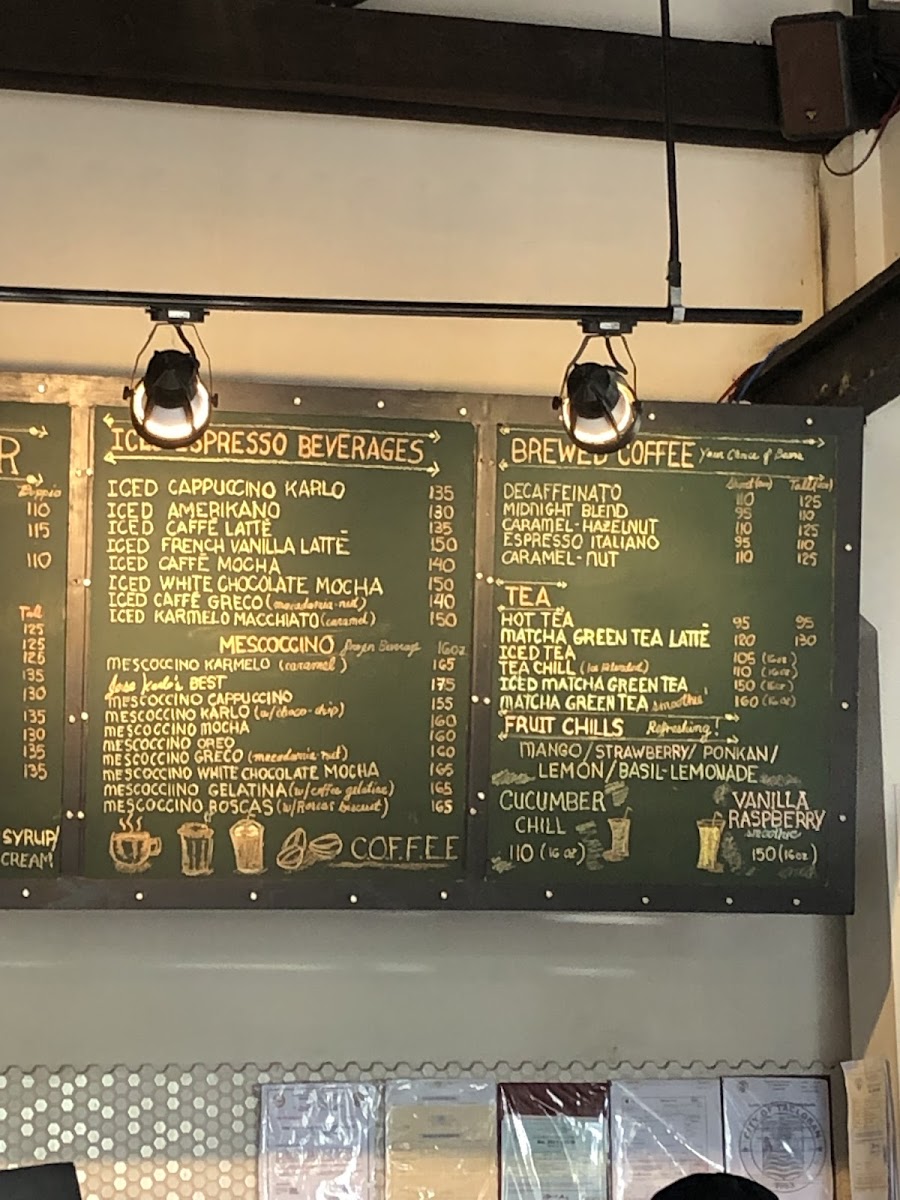 R
Doppio
110
115
110
Tall
125
125
125
135
130
135
130
135
135
SYRUP/
CREAM
ICED ESPRESSO BEVERAGES
ICED CAPPUCCINO KARLO 135
ICED AMERIKANO 130
ICED CAFFÉ LATTÉ 135
ICED FRENCH VANILLA LATTÉ 150
ICED CAFFÉ MOCHA 140
ICED WHITE CHOCOLATE MOCHA 150
ICED CAFFÉ GRECO (macadamia-nut) 140
ICED KARMELO MACCHIATO (caramel) 150
MESCOCCINO Frozen Beverage 16oz
MESCOCCINO KARMELO (caramel) 165
Jose Karlo's BEST 175
MESCOCCINO CAPPUCCINO 155
MESCOCCINO KARLO (w/choco-chip) 160
MESCOCCINO MOCHA 160
MESCOCCINO OREO 160
MESCOCCINO GRECO (macadamia nut)
MESCOCCINO WHITE CHOCOLATE MOCHA 165
MESCOCCIINO GELATINA (w/coffee gelatine) 165
MESCOCCINO ROSCAS (w/Roscas biscuit) 165
COFFEE
BREWED COFFEE Your Choice of Beans
Short(8oz) Tall(12oz)
DECAFFEINATO 110 125
MIDNIGHT BLEND 95 110
CARAMEL-HAZELNUT 110 125
ESPRESSO ITALIANO 95 110
CARAMEL-NUT 110 125
TEA
HOT TEA 95 95
MATCHA GREEN TEA LATTÉ 120 130
ICED TEA 105 (16oz)
TEA CHILL (Ice Blended) 110 (16oz)
ICED MATCHA GREEN TEA 150 (16oz)
MATCHA GREEN TEA smoothie 160 (16oz)
FRUIT CHILLS Refreshing!
MANGO/STRAWBERRY/PONKAN/
LEMON/BASIL-LEMONADE
CUCUMBER
CHILL
110 (16 oz)
VANILLA
RASPBERRY
smoothie
150 (16oz)
CITY OF TACLOBAN